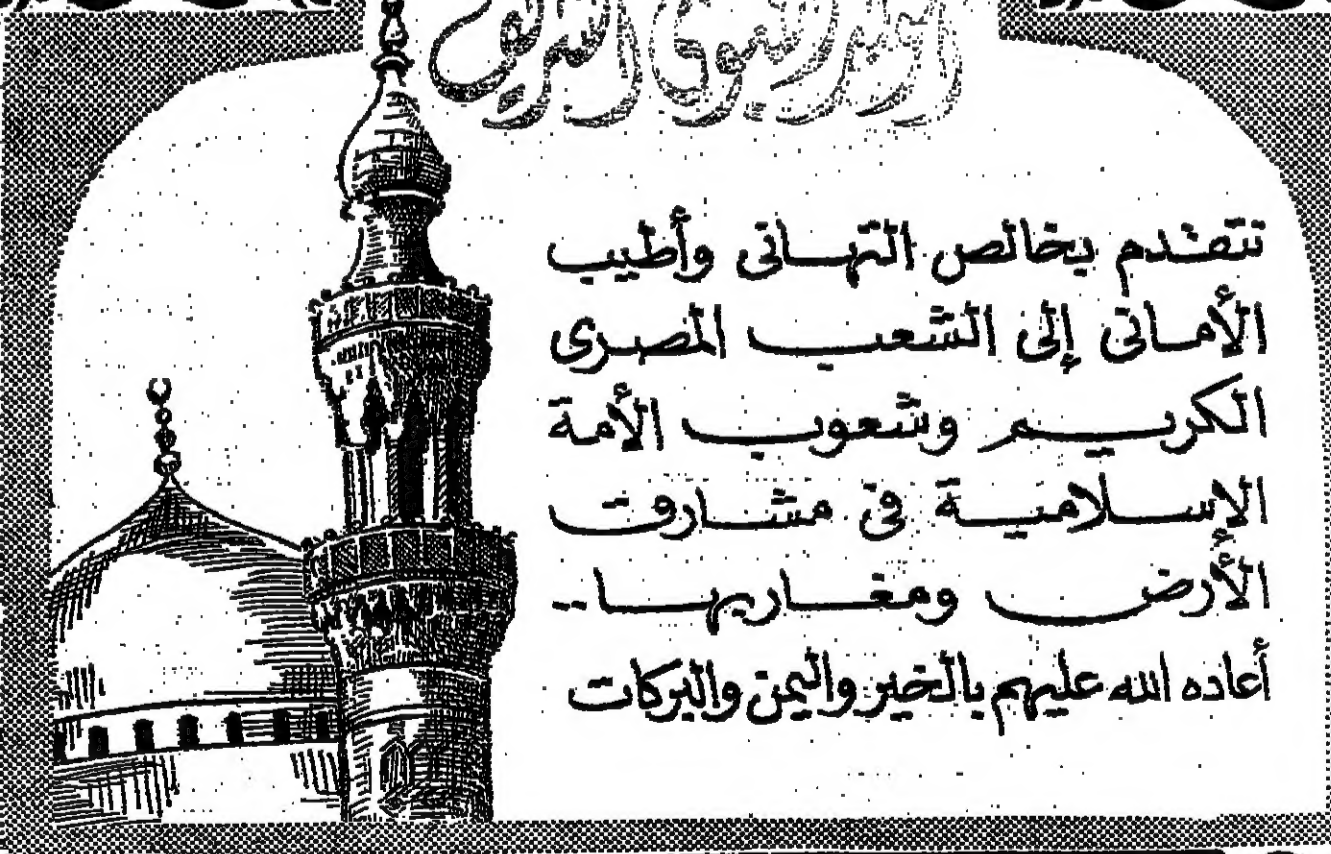 المولد النبوى الشريف
تتقدم بخالص التهـانى وأطيب
الأمـانى إلى الشعـب المصـرى
الكريـم وشعوب الأمة
الإسـلاميـة فى مشـارق
الأرض ومغـاربهـا..
أعاده الله عليهم بالخير واليمن والبركات